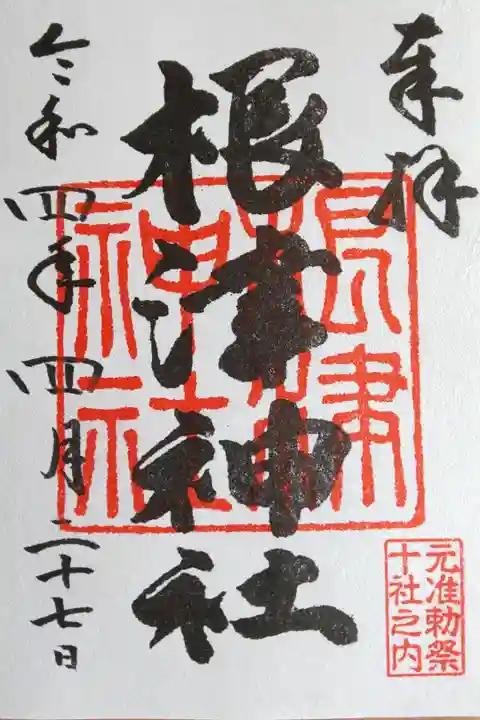 奉拝
根津神社
根津神社
令和四年四月二十七日
元准勅祭
十社之内